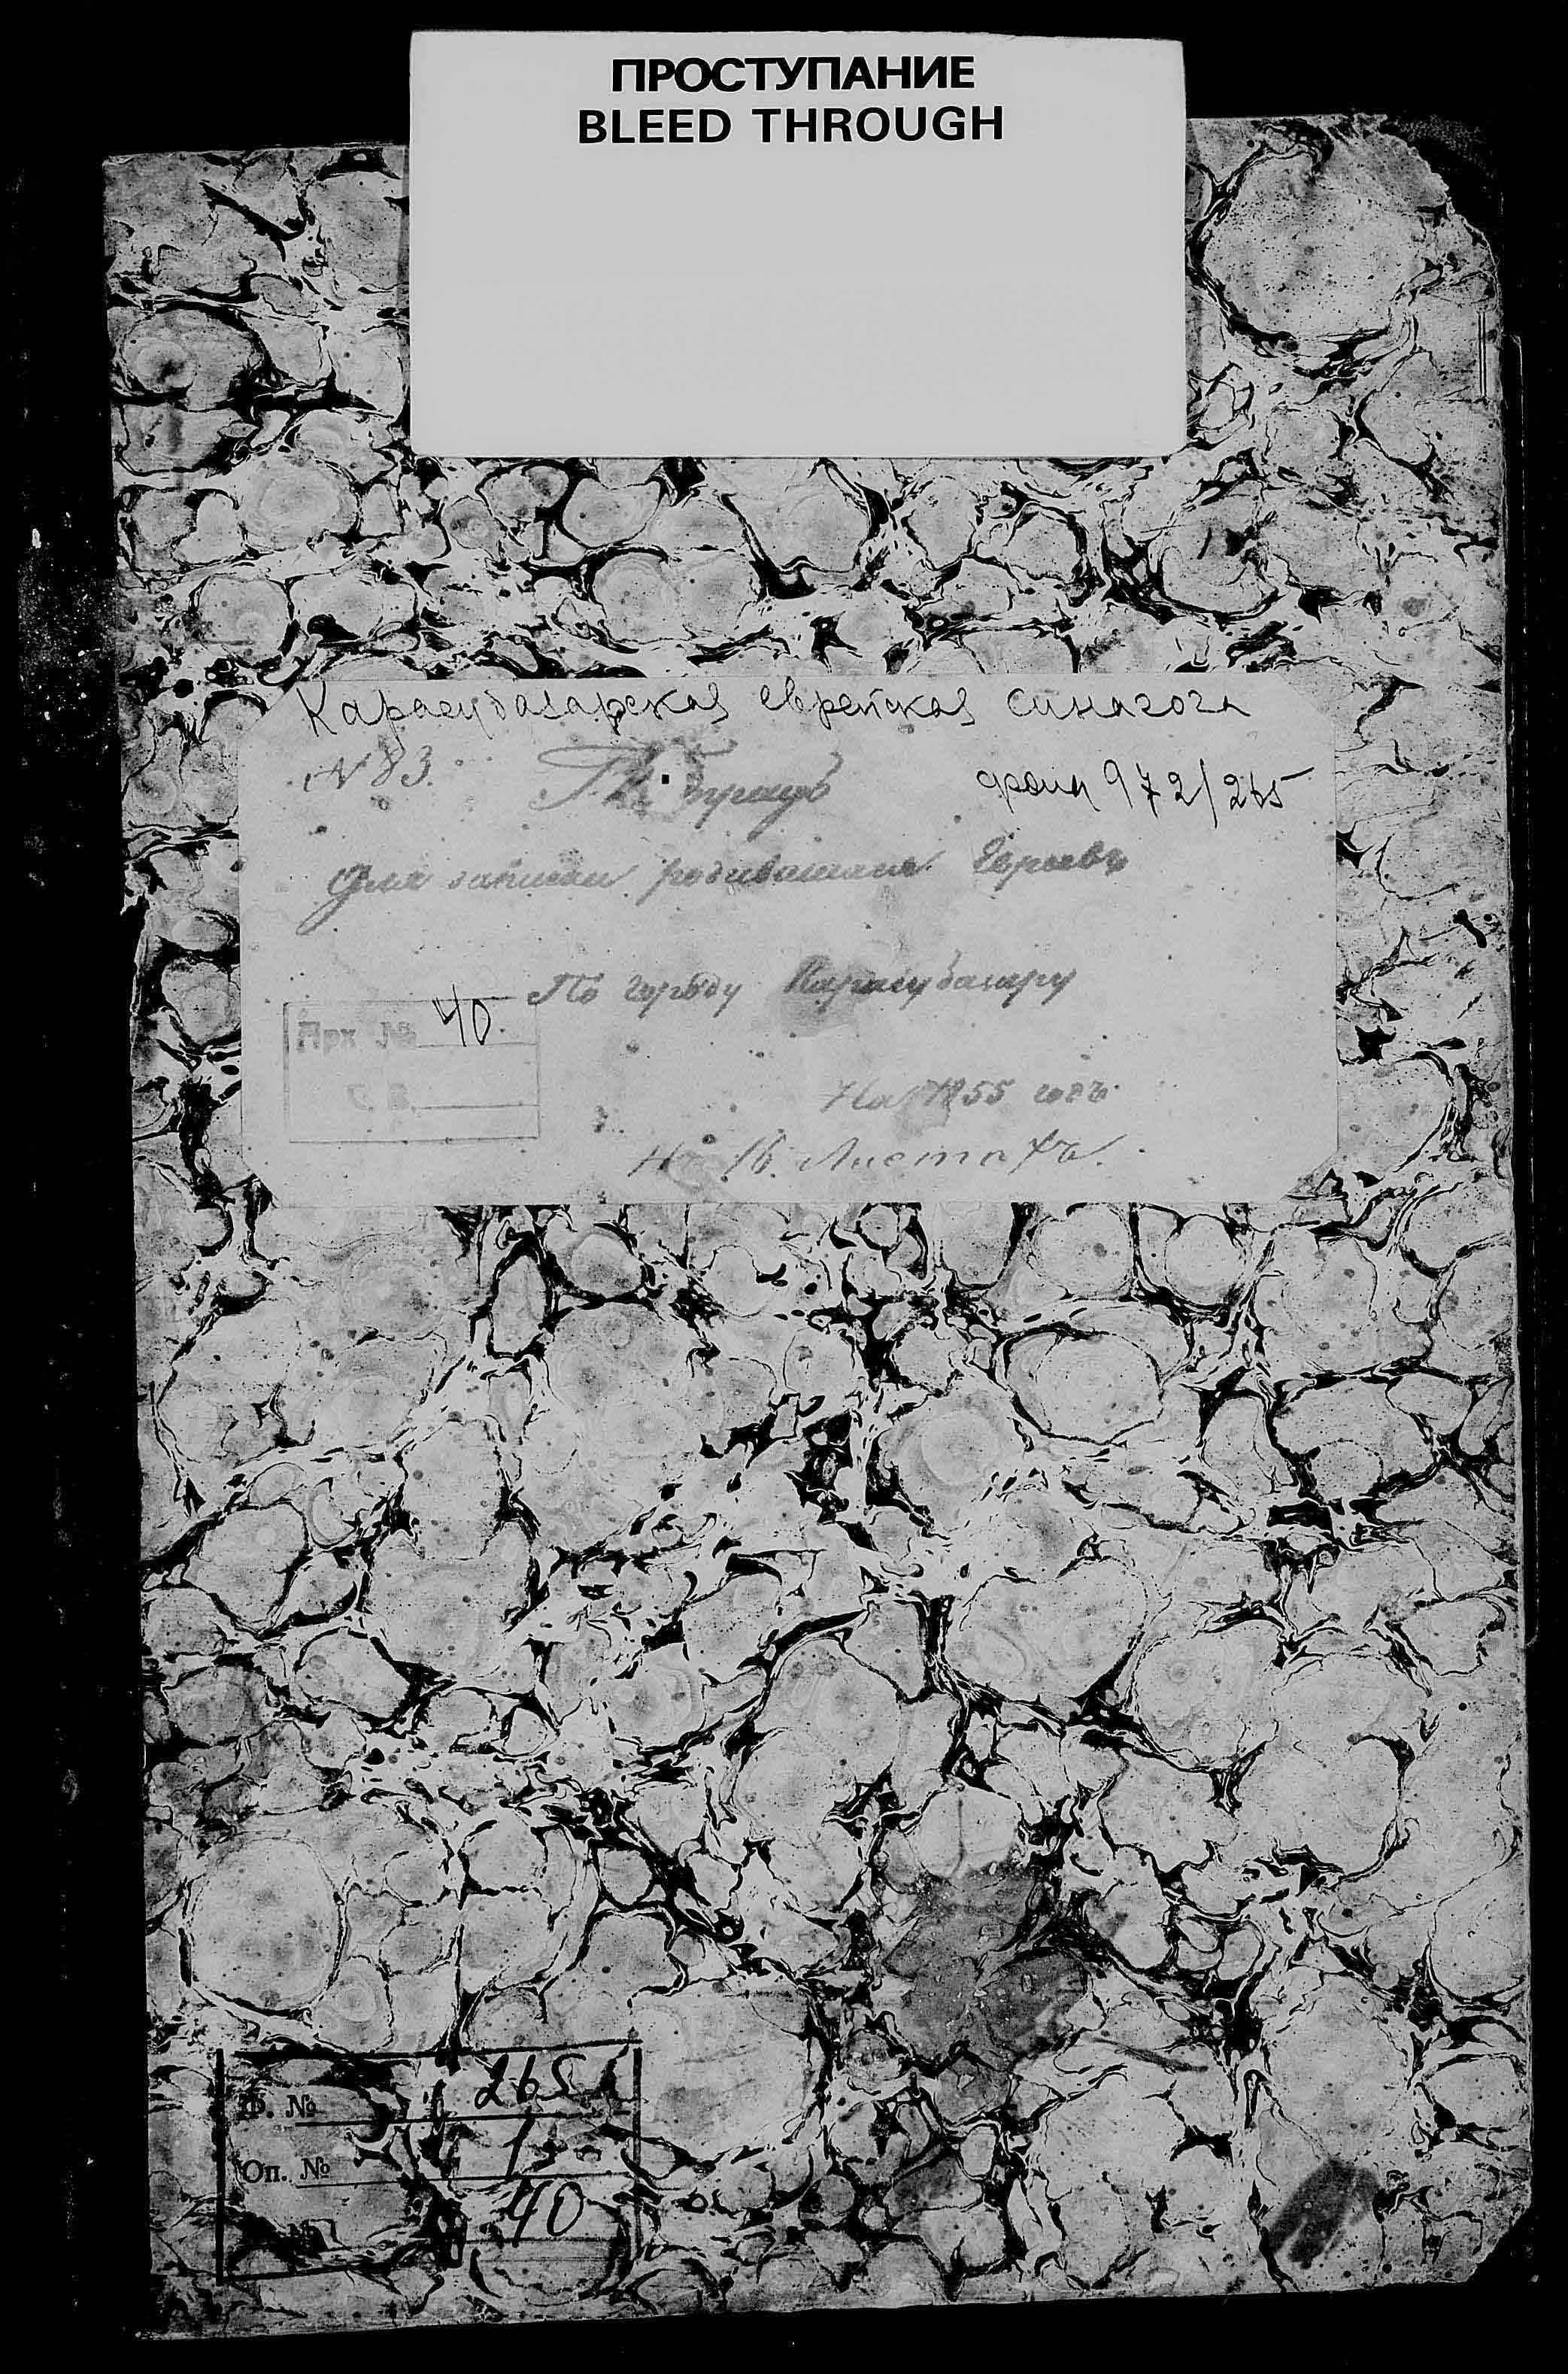 ПРОСТУПАНИЕ
BLEED THROUGH
Карасубазарская еврейская синагога
№ 83.
фонд 972/265
Для записки родившихся Евреевъ
По городу Карасубазару
Арх № 40
На 1855 годъ
На 16. Листахъ.
Ф. № 265
Оп. № 1
40